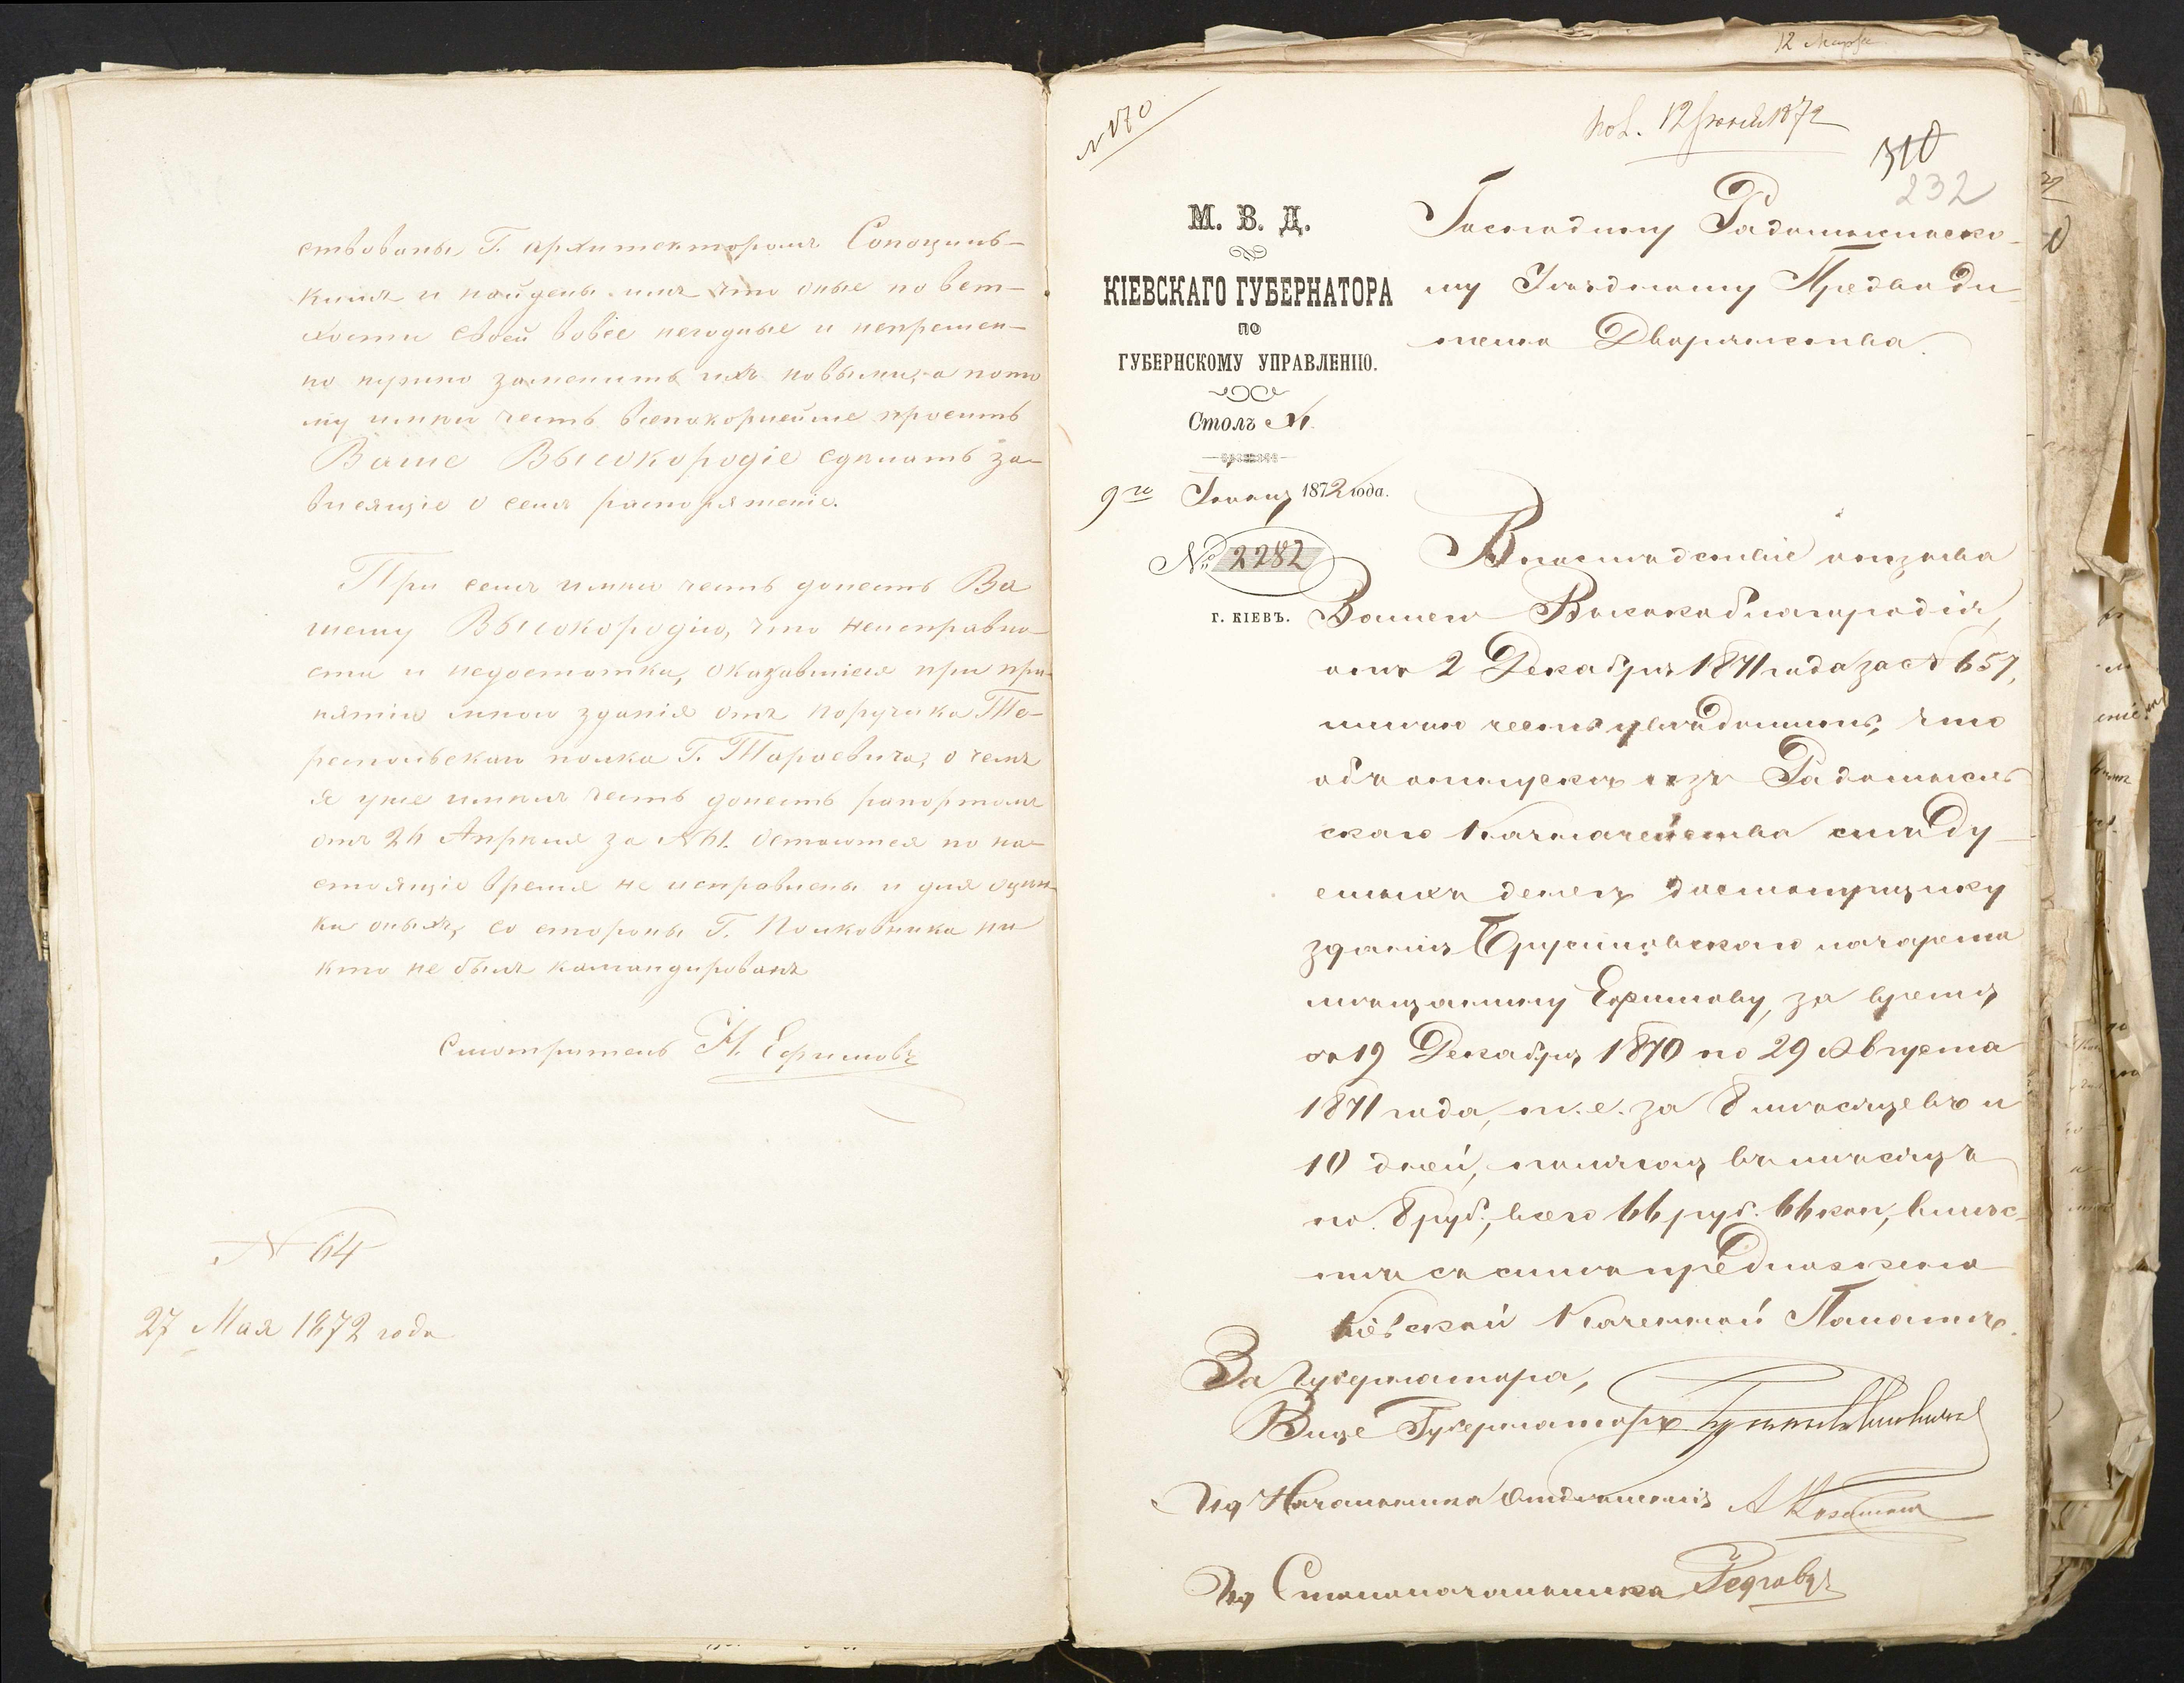 ствованы Г. архитекторомъ Сопоцинь-
кимъ и найдены имъ что оные по вет-
хости своей вовсе негодные и непремен-
но нужно заменить ихъ новыми, а пото
му имѣю честь всепокорнейше просить
Ваше Высокородіе сдѣлать за-
висящіе о семъ распоряженіе.
При семъ имѣю честь донесть Ва
шему Высокородію, что неисправно-
сти и недостатки, оказавшіеся при при-
нятіи мною зданія отъ поручика Те-
репольскаго полка Г. Тарасевича, о чемъ
я уже имѣлъ честь донесть рапортомъ
отъ 26 Апрѣля за № 61. остаются по на-
стоящіе время не исправлены и для оцѣн-
ки оныхъ, со стороны Г. Полковника ни
кто не былъ командированъ
Смотритель Н. Ефимовъ
№ 64
27 Мая 1872 года
12 Марта
№ 170
пол. 12 Іюня 1872
310
232
М. В. Д.
КІЕВСКАГО ГУБЕРНАТОРА
ПО
ГУБЕРНСКОМУ УПРАВЛЕНІЮ.
Столъ
9го Іюня 1872 года.
№ 2282
Г. КІЕВЪ.
Господину Радомысльско-
му Уѣздному Предводи-
телю Дворянства.
Впослѣдствіе отзыва
Вашего Высокоблагородія,
отъ 2 Декабря 1871 года за № 657,
имѣю честь увѣдомить, что
объ отпускѣ изъ Радомысль
скаго Казначейства слѣду-
емыхъ денегъ достопрщику
зданія Брусиловскаго лазарета
мѣщанину Ефимову, за время
съ 19 Декабря 1870 по 29 Августа
1871 года, т. е. за 8 мѣсяцевъ и
10 дней, полагая въ мѣсяцъ
по 8 руб., всего 66 руб. 66 коп., вмѣс-
тѣ съ симъ предложено
Кіевской Казенной Палатѣ.
За Губернатора,
Вице Губернаторъ
Ид Начальника Отдѣленія А
Ид Столоначальника